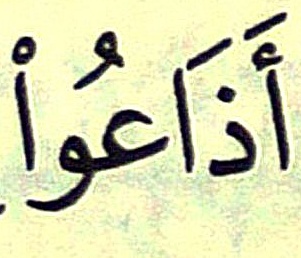 أَذَاعُواْ